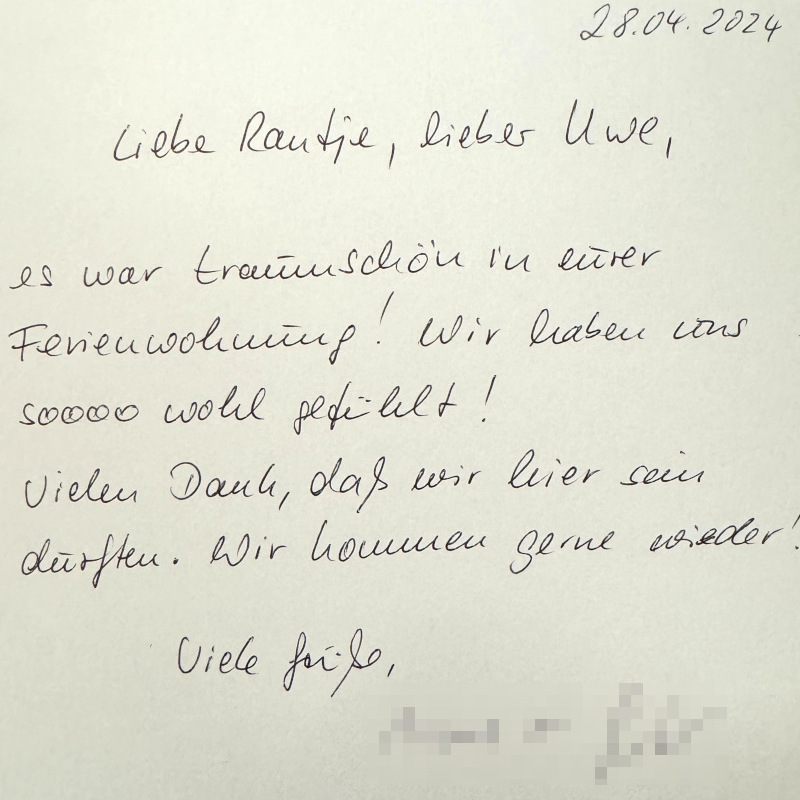 28.04.2024
Liebe Rautje, lieber Uwe,
es war traumschön in eurer
Ferienwohnung! Wir haben uns
sooooo wohl gefühlt!
Vielen Dank, daß wir hier sein
durften. Wir kommen gerne wieder!
Viele Grüße,